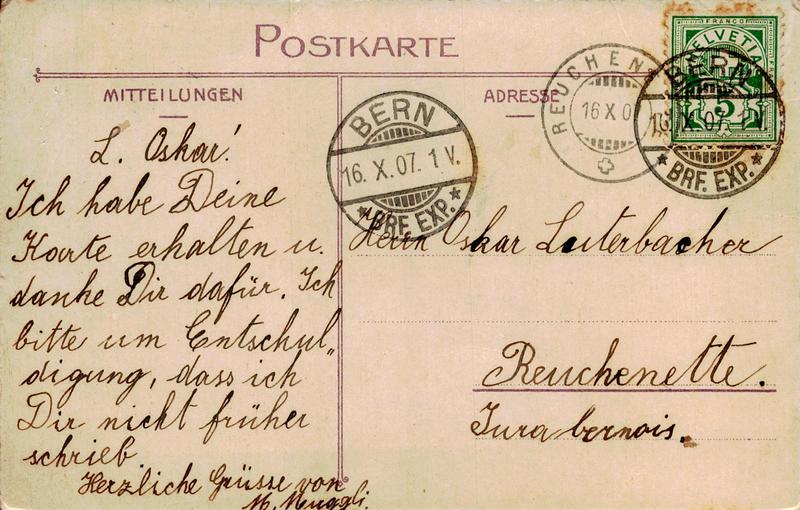 POSTKARTE
MITTEILUNGEN
L. Oskar!
Ich habe Deine
Karte erhalten u.
danke Dir dafür. Ich
bitte um Entschul„
digung, dass ich
Dir nicht früher
schrieb.
Herzliche Grüsse von
M. Muggli.
BERN
16. X. 07. 1 V.
*BRF. EXP.*
ADRESSE
REUCHEN
16 X 0
FRANCO
HELVETIA
5
BERN
16. X. 07. 1 V.
* BRF. EXP. *
Herrn Oskar Lauterbacher
Reuchenette.
Jura bernois.